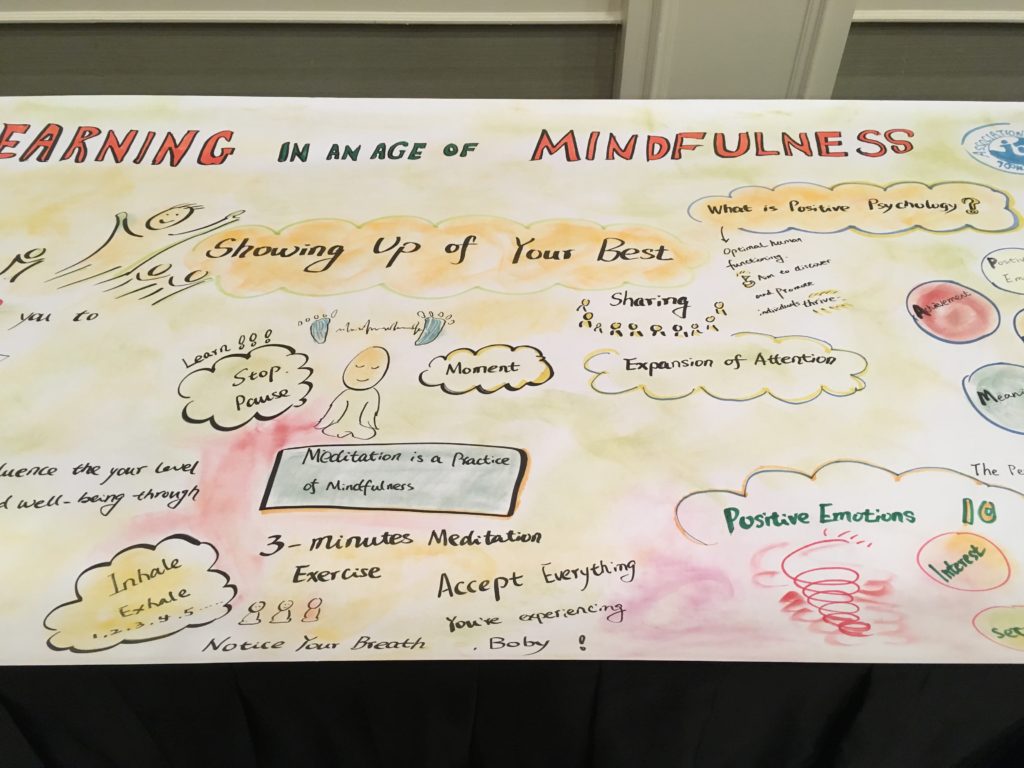 EARNING IN AN AGE OF MINDFULNESS
ASSOCIATION
Showing Up of Your Best
What is Positive Psychology?
Optimal human
functioning.
Aim to discover
and promote
individuals thrive.
you to
Learn
Stop.
Pause
Moment
Sharing
Expansion of Attention
Achievement
Meani
Meditation is a Practice
of Mindfulness
luence the your level
d well-being through
3-minutes Meditation
Exercise
Inhale
Exhale
1,2,3,4,5....
Notice Your Breath
Accept Everything
You're experiencing
. Boby !
The Pe
Positive Emotions 10
Interest
ser